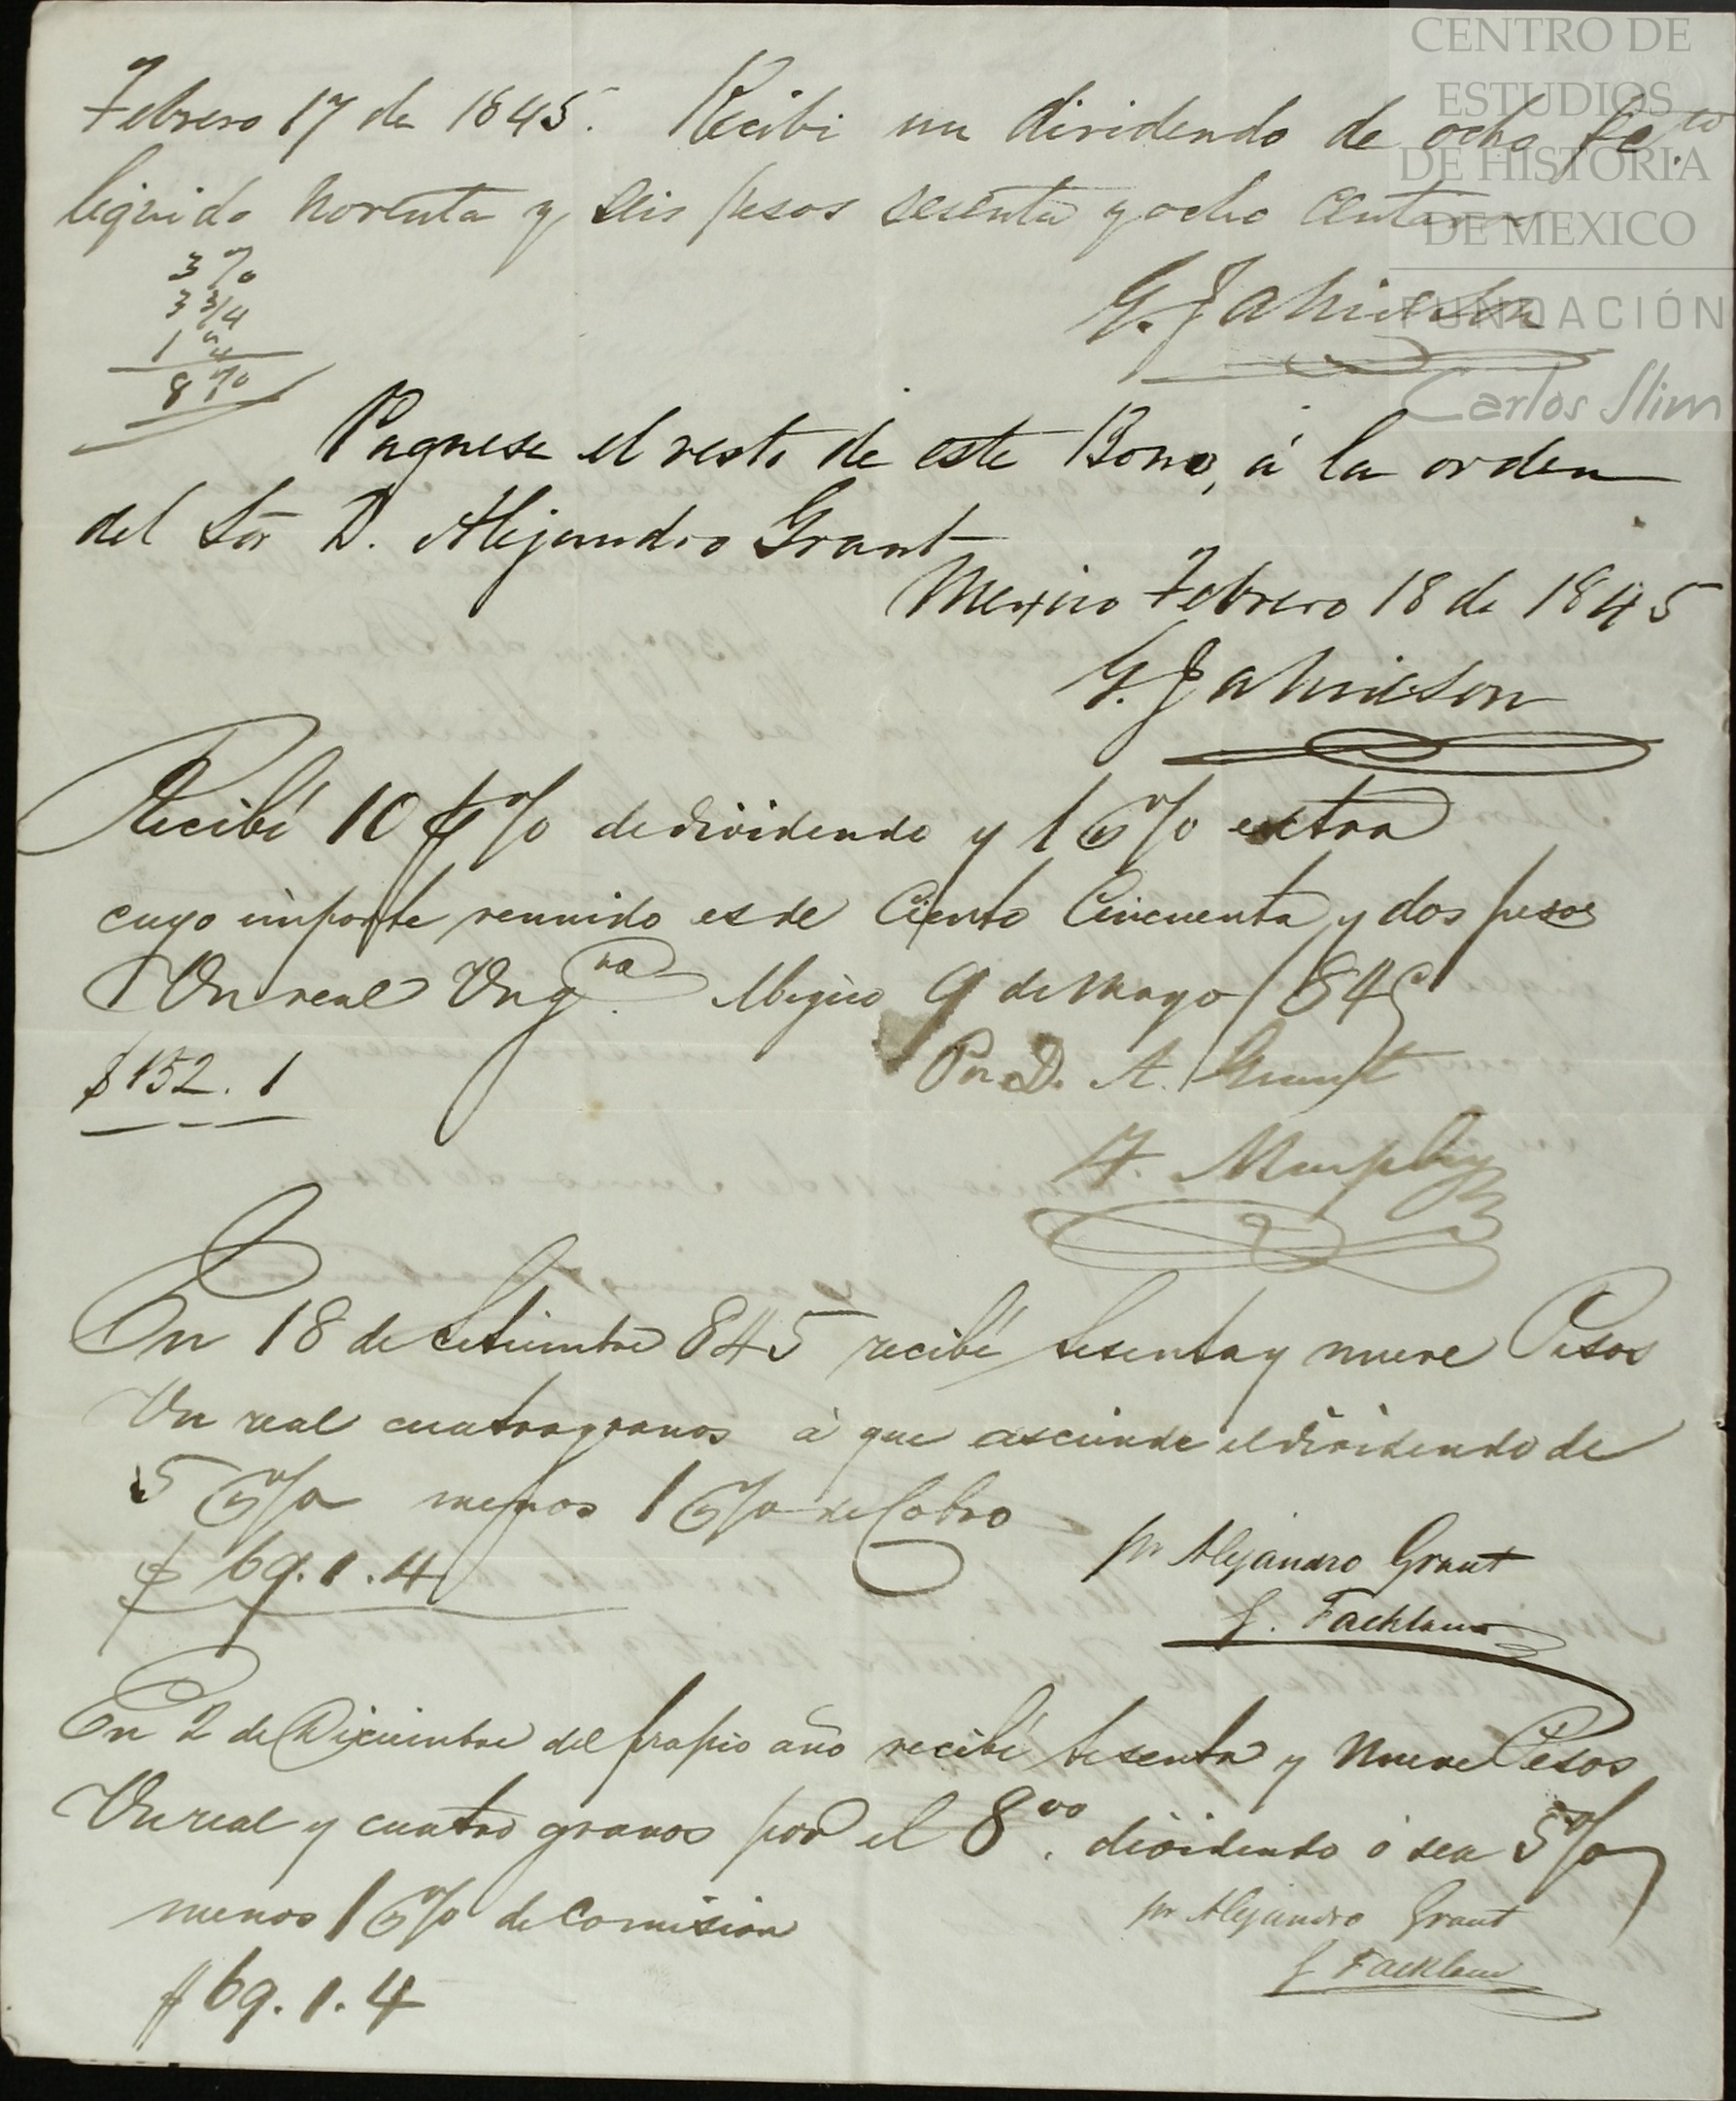 CENTRO DE
ESTUDIOS
DE HISTORIA
DE MEXICO
FUNDACIÓN
Carlos Slim
Febrero 17 de 1845. Recibi un dividendo de ocho
liquido noventa y seis pesos sesenta y ocho centavos
3 %
3 3/4
1 1/4
8 %
G. Jamieson
Paguese el resto de este Bono, á la orden
del Sor D. Alejandro Grant
Mexico Febrero 18 de 1845
G. Jamieson
Recibí 10 % de dividendo y 1 % extra
cuyo importe reunido es de Ciento Cincuenta y dos pesos
Un real Mejico 9 de Mayo 1845
$152. 1
Por D. A. Grant
F. Murphy
En 18 de Setiembre 845 recibí sesenta y nueve Pesos
Un real cuatro granos à que asciende el dividendo de
5 % menos 1 % de Cobro
$ 69. 1. 4
pr Alejandro Grant
En 2 de Diciembre del propio año recibí sesenta y nueve Pesos
Un real y cuatro granos por el 8vo. dividendo ó sea 5%
menos 1 % de Comision
pr Alejandro Grant
$ 69. 1. 4